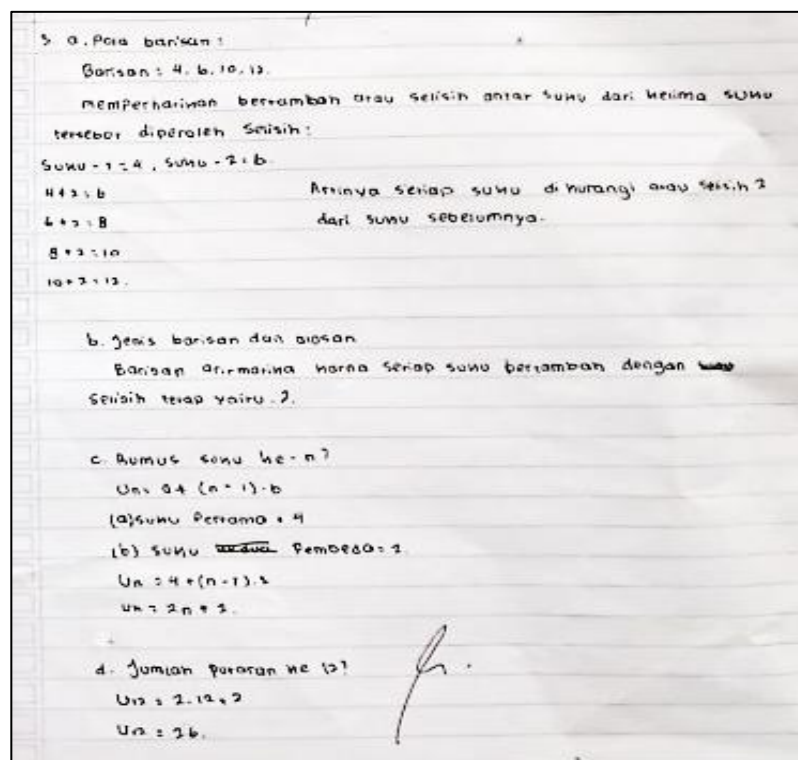 3 a. Pola barisan :
Barisan : 4, 6, 10, 12.
memperhatikan bertambah atau selisih antar suku dari kelima suku
tersebut diperoleh selisih :
Suku - 1 = 4, suku - 2 = 6.
4 + 2 = 6
Artinya setiap suku di kurangi atau selisih 2
6 + 2 = 8
dari suku sebelumnya.
8 + 2 = 10
10 + 2 = 12.
b. Jenis barisan dan alasan
Barisan aritmatika karna setiap suku bertambah dengan
selisih tetap yaitu 2.
c. Rumus suku ke - n ?
Un = a + (n - 1) . b
(a) suku Pertama = 4
(b) suku Pembeda = 2.
Un = 4 + (n - 1) . 2
Un = 2n + 2.
d. Jumlah putaran ke 12 ?
U12 = 2 . 12 + 2
U12 = 26.